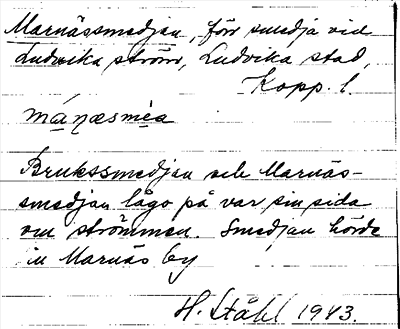 Marnässmedjan, förr smedja vid
Ludvika ström, Ludvika stad,
Kopp. l.
mánæsmèa
Brukssmedjan och Marnäs-
smedjan lågo på var sin sida
om strömmen. Smedjan hörde
in Marnäs by
H. Ståhl 1943.